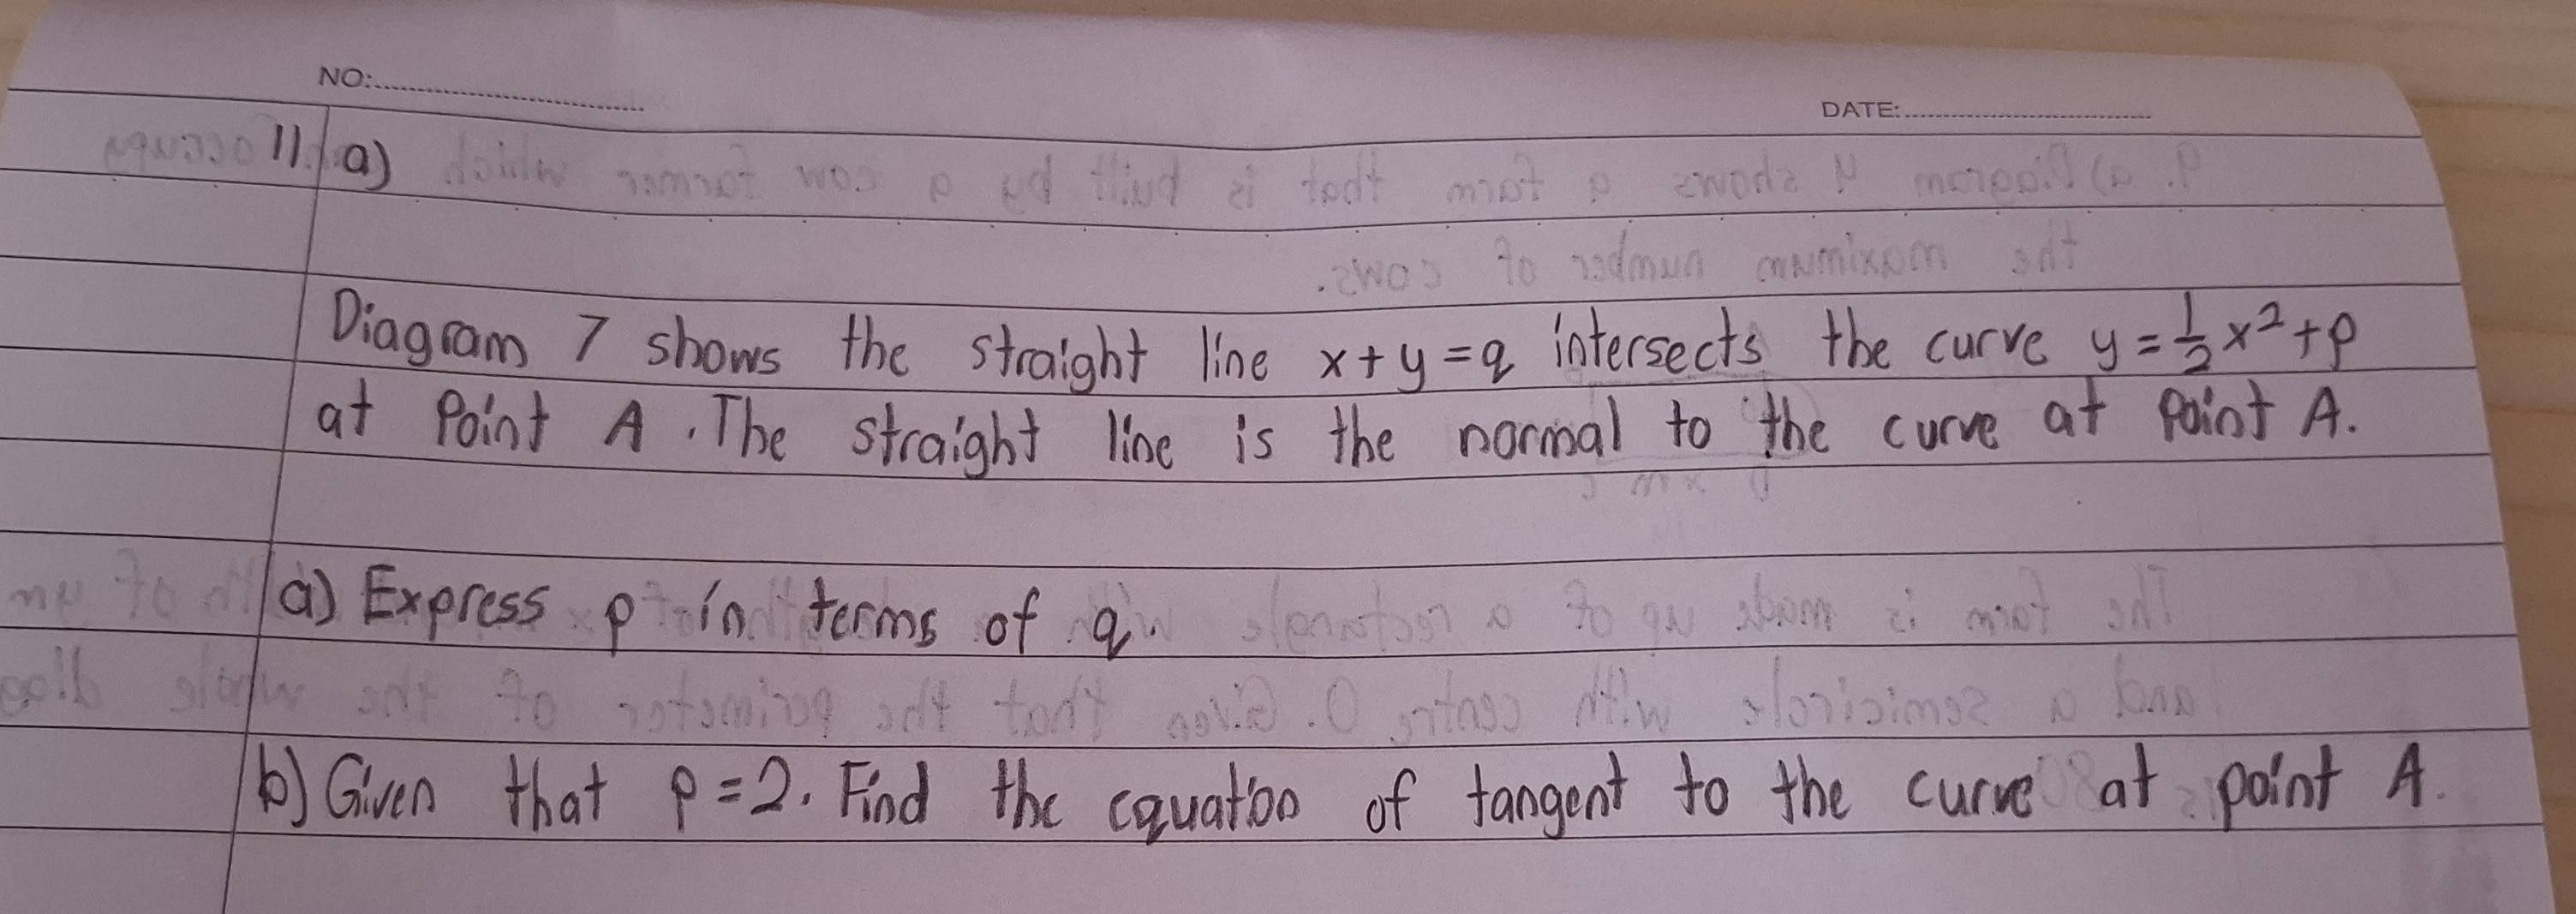 NO:
DATE:
11. a)
Diagram 7 shows the straight line x + y = q intersects the curve y = 1/2 x² + p
at Point A. The straight line is the normal to the curve at Point A.
a) Express p in terms of q.
b) Given that p = 2. Find the equation of tangent to the curve at point A.